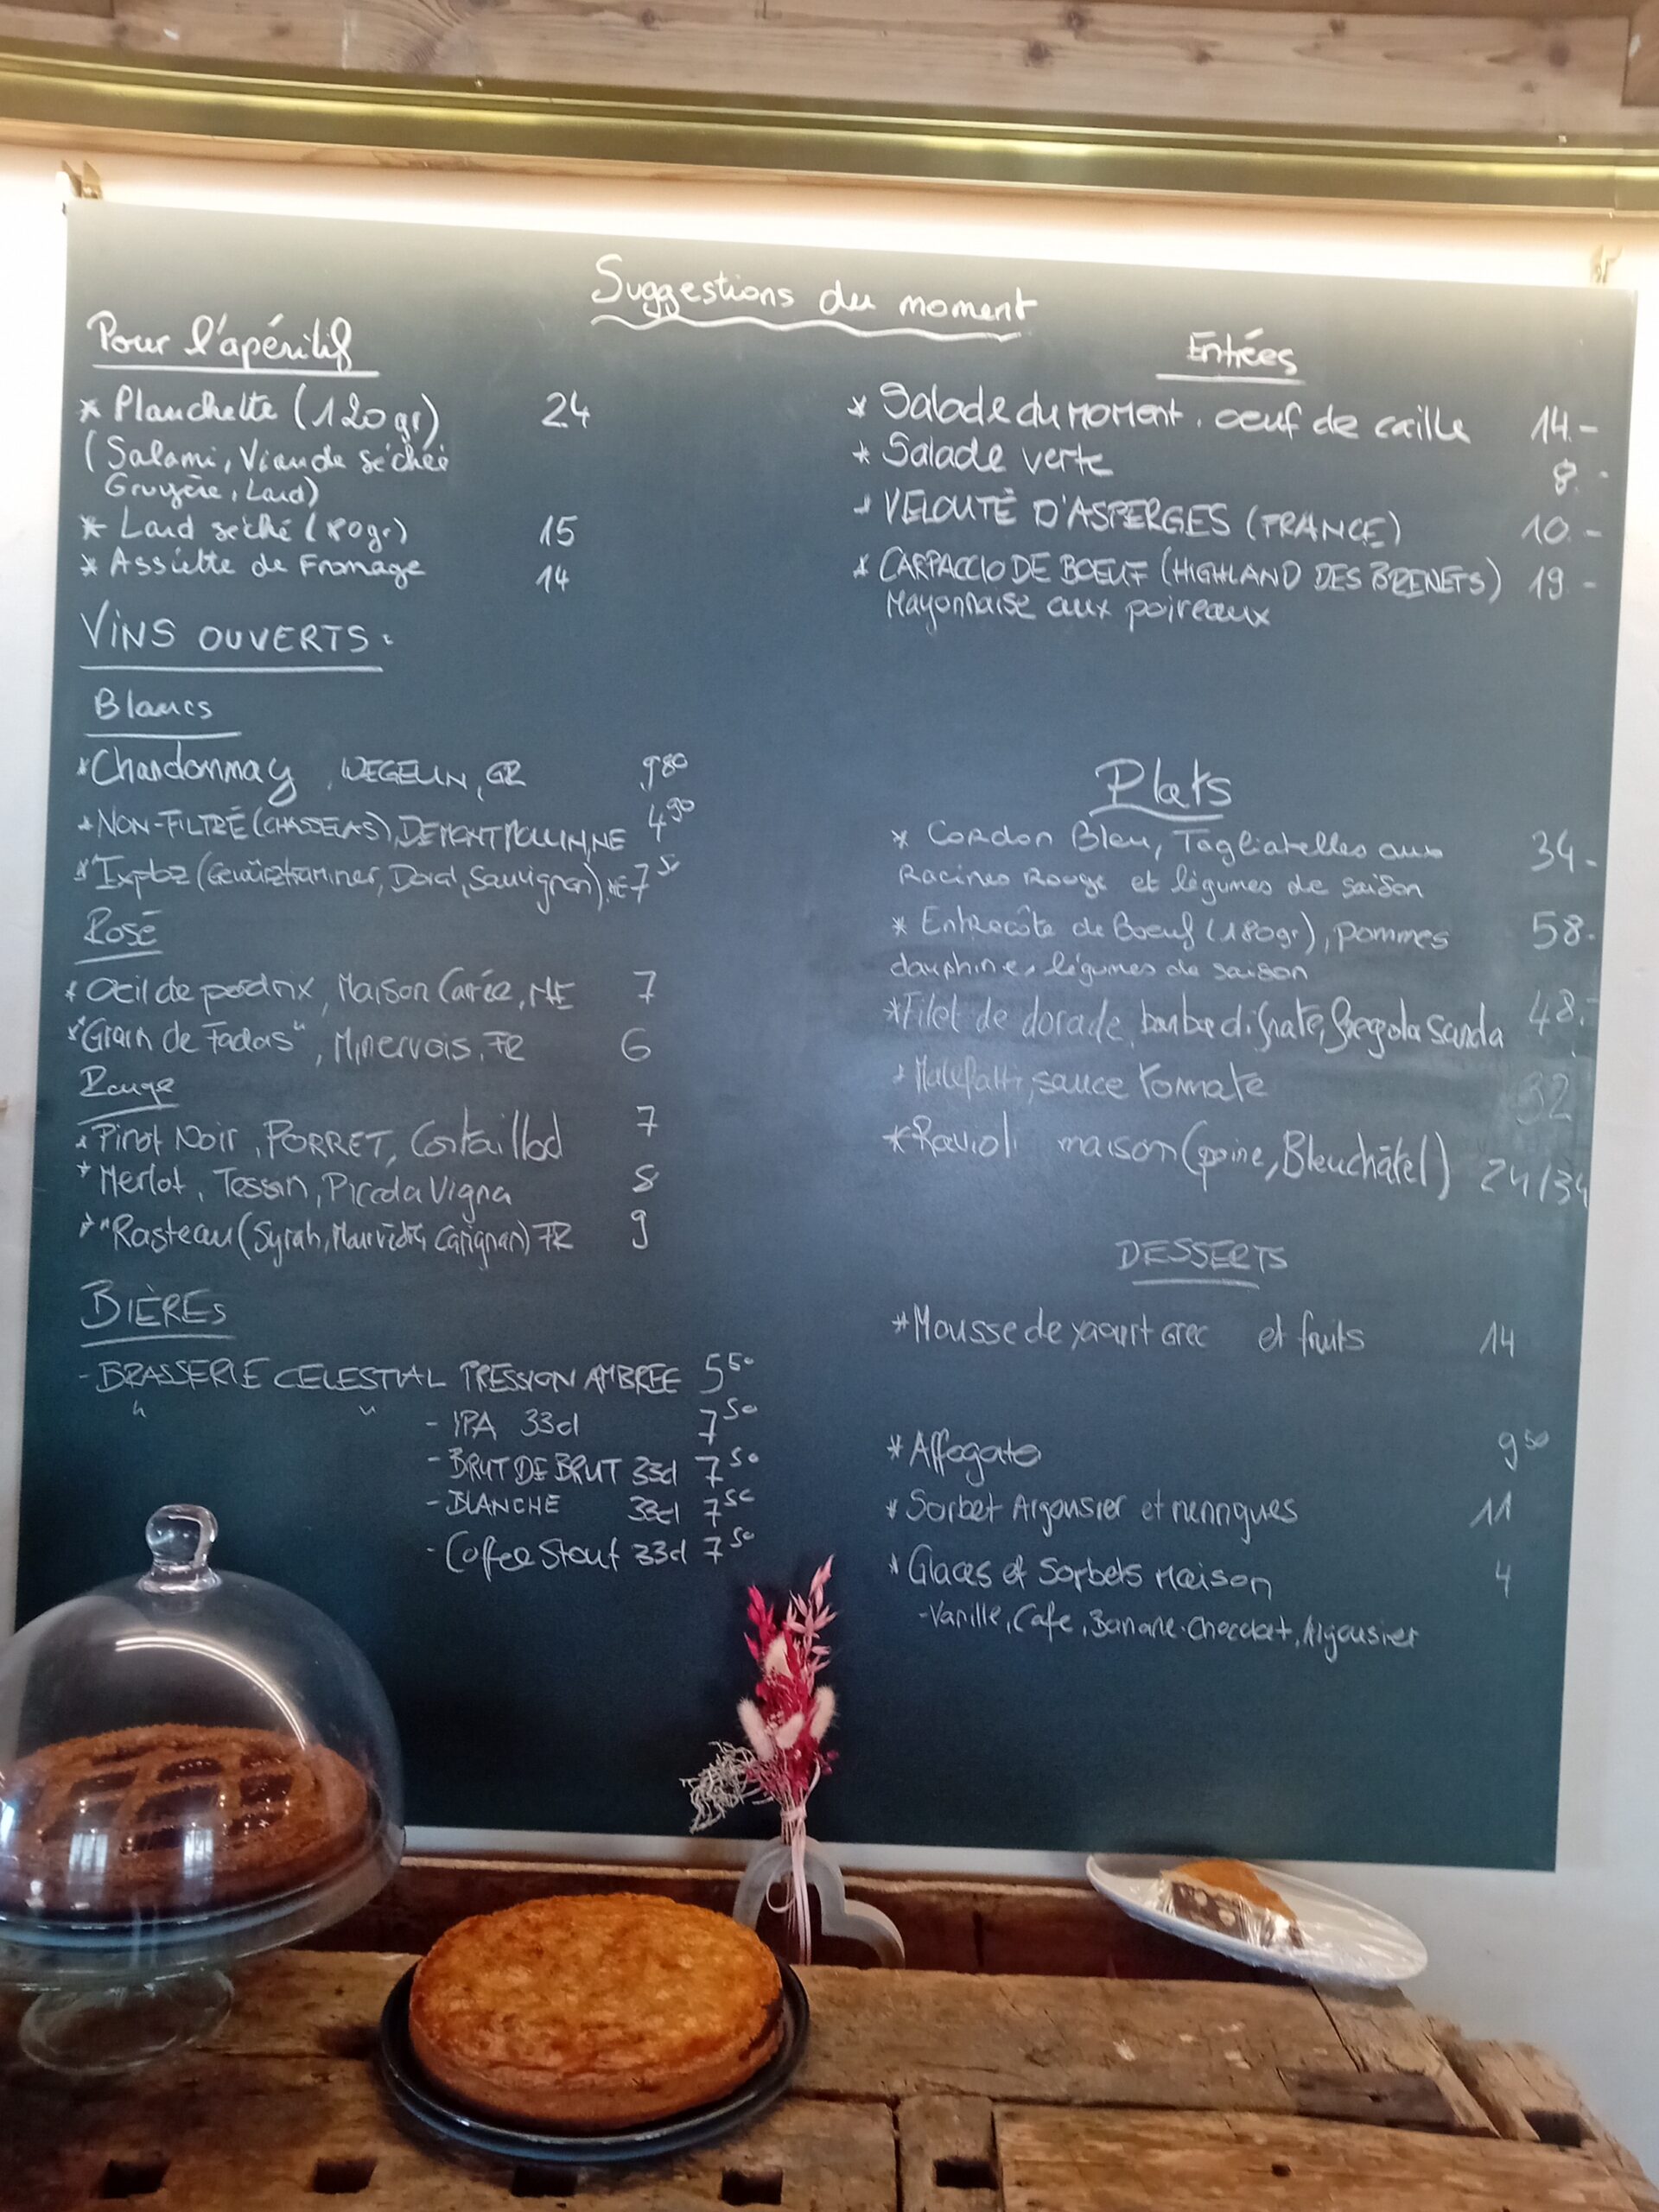 Suggestions du moment
Pour l'apéritif
* Planchette (120gr) 24
(Salami, Viande séchée
Gruyère, Lard)
* Lard séché (80gr) 15
* Assiette de Fromage 14
VINS OUVERTS:
Blancs
*Chardonnay, WEGELIN, GR 9.80
*NON-FILTRÉ (CHASSELAS), DEMONTMOLLIN, NE 4.90
(Gewürztraminer, Doral, Sauvignon), NE 7.50
Rosé
* Oeil de perdrix, Maison Carrée, NE 7
*"Grain de Fadas", Minervois, FR 6
Rouge
* Pinot Noir, PORRET, Cortaillod 7
* Merlot, Tessin, Piccola Vigna 8
* "Rasteau (Syrah, Mourvèdre, Carignan) FR 9
BIÈREs
- BRASSERIE CELESTIAL PRESSION AMBREE 5.50
" " - IPA 33cl 7.50
- BRUT DE BRUT 33cl 7.50
- BLANCHE 33cl 7.50
- Coffee Stout 33cl 7.50
Entrées
* Salade du moment, oeuf de caille 14.-
* Salade verte 8.-
* VELOUTÉ D'ASPERGES (FRANCE) 10.-
* CARPACCIO DE BOEUF (HIGHLAND DES BRENETS) 19.-
Mayonnaise aux poireaux
Plats
* Cordon Bleu, Tagliatelles aux 34.-
Racines Rouge et légumes de saison
* Entrecôte de Boeuf (180gr), pommes 58.-
dauphines, légumes de saison
*Filet de dorade, barba di frate, fregola sarda 48.-
* Malefatti, sauce tomate 32
*Ravioli maison (poire, Bleuchâtel) 24/34
DESSERTS
*Mousse de yaourt Grec et fruits 14
* Affogato 9.50
* Sorbet Argousier et meringues 11
* Glaces et Sorbets Maison 4
-Vanille, Café, Banane-Chocolat, Argousier